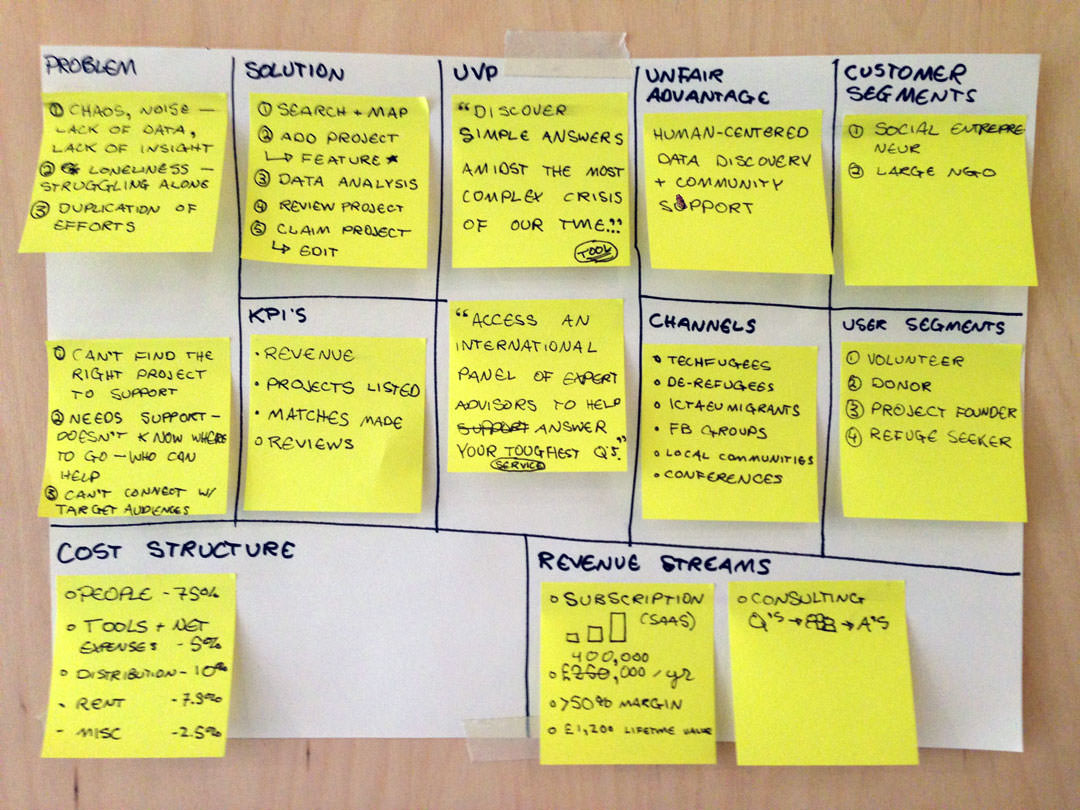 PROBLEM
① CHAOS, NOISE —
LACK OF DATA,
LACK OF INSIGHT
② LONELINESS —
STRUGGLING ALONE
③ DUPLICATION OF
EFFORTS
① CAN'T FIND THE
RIGHT PROJECT
TO SUPPORT
② NEEDS SUPPORT —
DOESN'T KNOW WHERE
TO GO — WHO CAN
HELP
③ CAN'T CONNECT W/
TARGET AUDIENCES
SOLUTION
① SEARCH + MAP
② ADD PROJECT
↳ FEATURE ★
③ DATA ANALYSIS
④ REVIEW PROJECT
⑤ CLAIM PROJECT
↳ EDIT
KPI'S
• REVENUE
• PROJECTS LISTED
• MATCHES MADE
○ REVIEWS
UVP
"DISCOVER
SIMPLE ANSWERS
AMIDST THE MOST
COMPLEX CRISIS
OF OUR TIME..."
TOOL
"ACCESS AN
INTERNATIONAL
PANEL OF EXPERT
ADVISORS TO HELP
SUPPORT ANSWER
YOUR TOUGHEST Q'S."
SERVICE
UNFAIR
ADVANTAGE
HUMAN-CENTERED
DATA DISCOVERY
+ COMMUNITY
SUPPORT
CHANNELS
• TECHFUGEES
○ DE-REFUGEES
• ICT4EU MIGRANTS
• FB GROUPS
• LOCAL COMMUNITIES
• CONFERENCES
CUSTOMER
SEGMENTS
① SOCIAL ENTREPRE
NEUR
② LARGE NGO
USER SEGMENTS
① VOLUNTEER
② DONOR
③ PROJECT FOUNDER
④ REFUGE SEEKER
COST STRUCTURE
○ PEOPLE - 75%
○ TOOLS + NET
EXPENSES - 5%
○ DISTRIBUTION - 10%
• RENT - 7.5%
- MISC - 2.5%
REVENUE STREAMS
○ SUBSCRIPTION
(SAAS)
400,000
○ £250,000 / yr
○ >50% MARGIN
○ £1,200 LIFETIME VALUE
○ CONSULTING
Q'S → → A'S